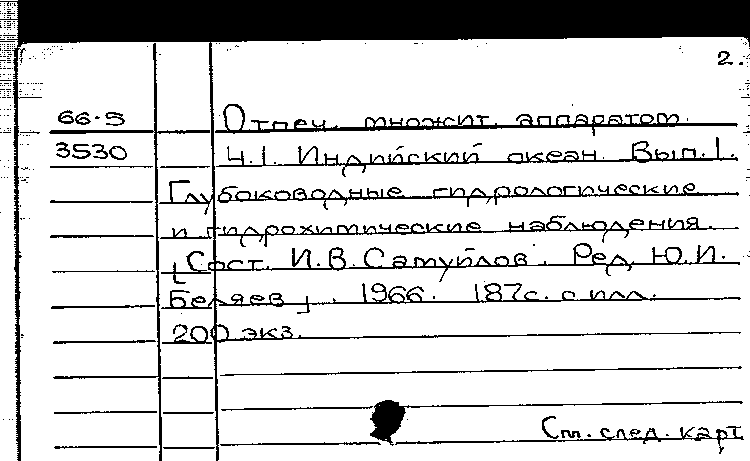 2.
66-5 Отпеч. множит. аппаратом.
3530 Ч.1. Индийский океан. Вып.1.
Глубоководные гидрологические
и гидрохимические наблюдения.
[Сост. И.В. Самуйлов. Ред. Ю.И.
Беляев]. 1966. 187с. с илл.
200 экз.
См. след. карт.